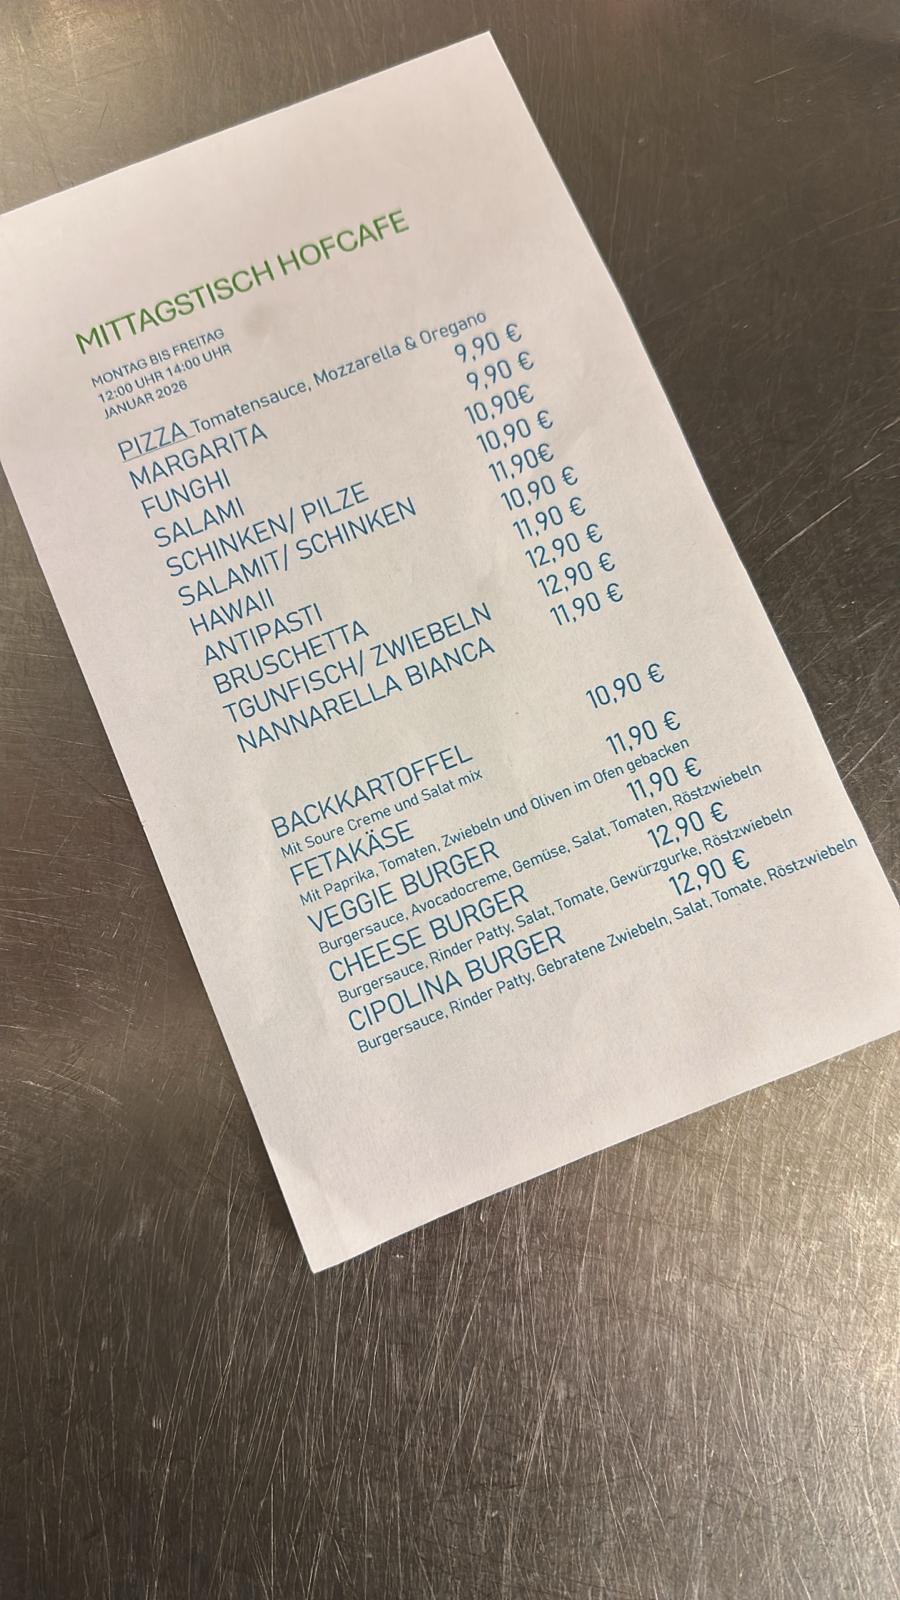 MITTAGSTISCH HOFCAFE
MONTAG BIS FREITAG
12:00 UHR 14:00 UHR
JANUAR 2026
PIZZA Tomatensauce, Mozzarella & Oregano
MARGARITA 9,90 €
FUNGHI 9,90 €
SALAMI 10,90€
SCHINKEN/ PILZE 10,90 €
SALAMIT/ SCHINKEN 11,90€
HAWAII 10,90 €
ANTIPASTI 11,90 €
BRUSCHETTA 12,90 €
TGUNFISCH/ ZWIEBELN 12,90 €
NANNARELLA BIANCA 11,90 €
BACKKARTOFFEL 10,90 €
Mit Soure Creme und Salat mix
FETAKÄSE 11,90 €
Mit Paprika, Tomaten, Zwiebeln und Oliven im Ofen gebacken
VEGGIE BURGER 11,90 €
Burgersauce, Avocadocreme, Gemüse, Salat, Tomaten, Röstzwiebeln
CHEESE BURGER 12,90 €
Burgersauce, Rinder Patty, Salat, Tomate, Gewürzgurke, Röstzwiebeln
CIPOLINA BURGER 12,90 €
Burgersauce, Rinder Patty, Gebratene Zwiebeln, Salat, Tomate, Röstzwiebeln